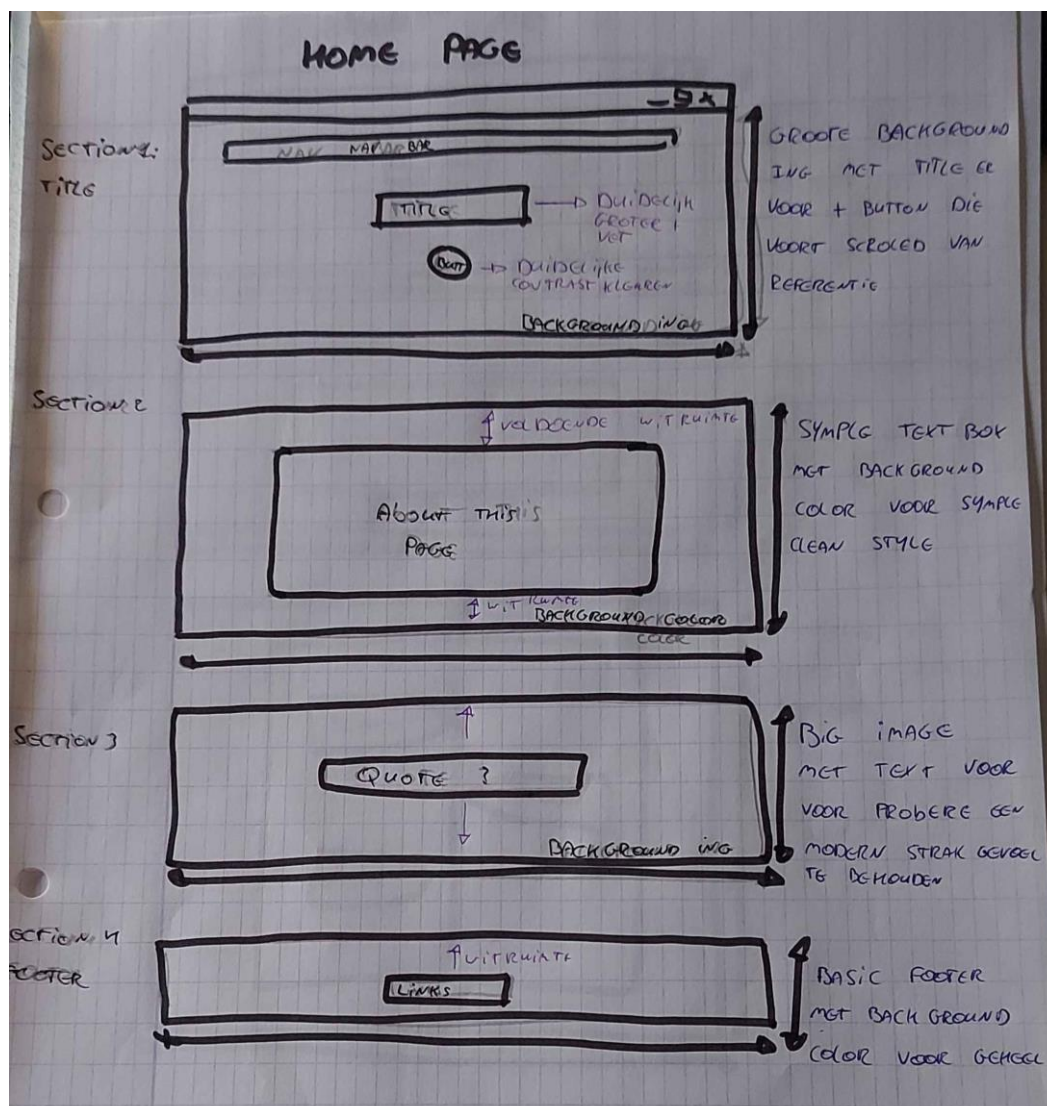 HOME PAGE
SECTION 1:
TITLE
NAV NAVBAR
TITLE
DUIDELIJK
GROTER
VET
BUTT
DUIDELIJKE
CONTRAST KLEUREN
BACKGROUND
GROOTE BACKGROUND
ING MET TITLE ER
VOOR + BUTTON DIE
VOORT SCROLED VAN
REFERENTIE
SECTION 2
VOLDOENDE WITRUIMTE
ABOUT THIS
PAGE
WITRUIMTE
BACKGROUND COLOR
COLOR
SYMPLE TEXT BOX
MET BACKGROUND
COLOR VOOR SYMPLE
CLEAN STYLE
SECTION 3
QUOTE ?
BACKGROUND ING
BIG IMAGE
MET TEXT VOOR
VOOR PROBERE EEN
MODERN STRAK GEVOEL
TE BEHOUDEN
ECTION 4
FOOTER
WITRUIMTE
LINKS
BASIC FOOTER
MET BACKGROUND
COLOR VOOR GEHEEL